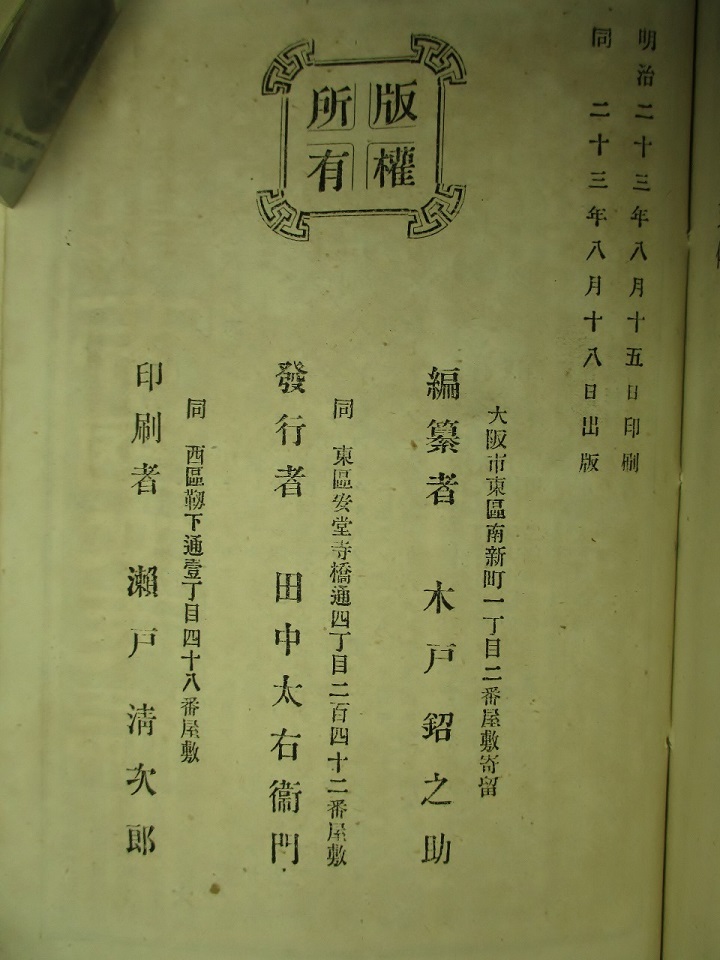 明治二十三年八月十五日印刷
同 二十三年八月十八日出版
版權
所有
大阪市東區南新町一丁目二番屋敷寄留
編纂者 木戸鉊之助
同 東區安堂寺橋通四丁目二百四十二番屋敷
發行者 田中太右衞門
同 西區靱下通壹丁目四十八番屋敷
印刷者 瀨戸淸次郎